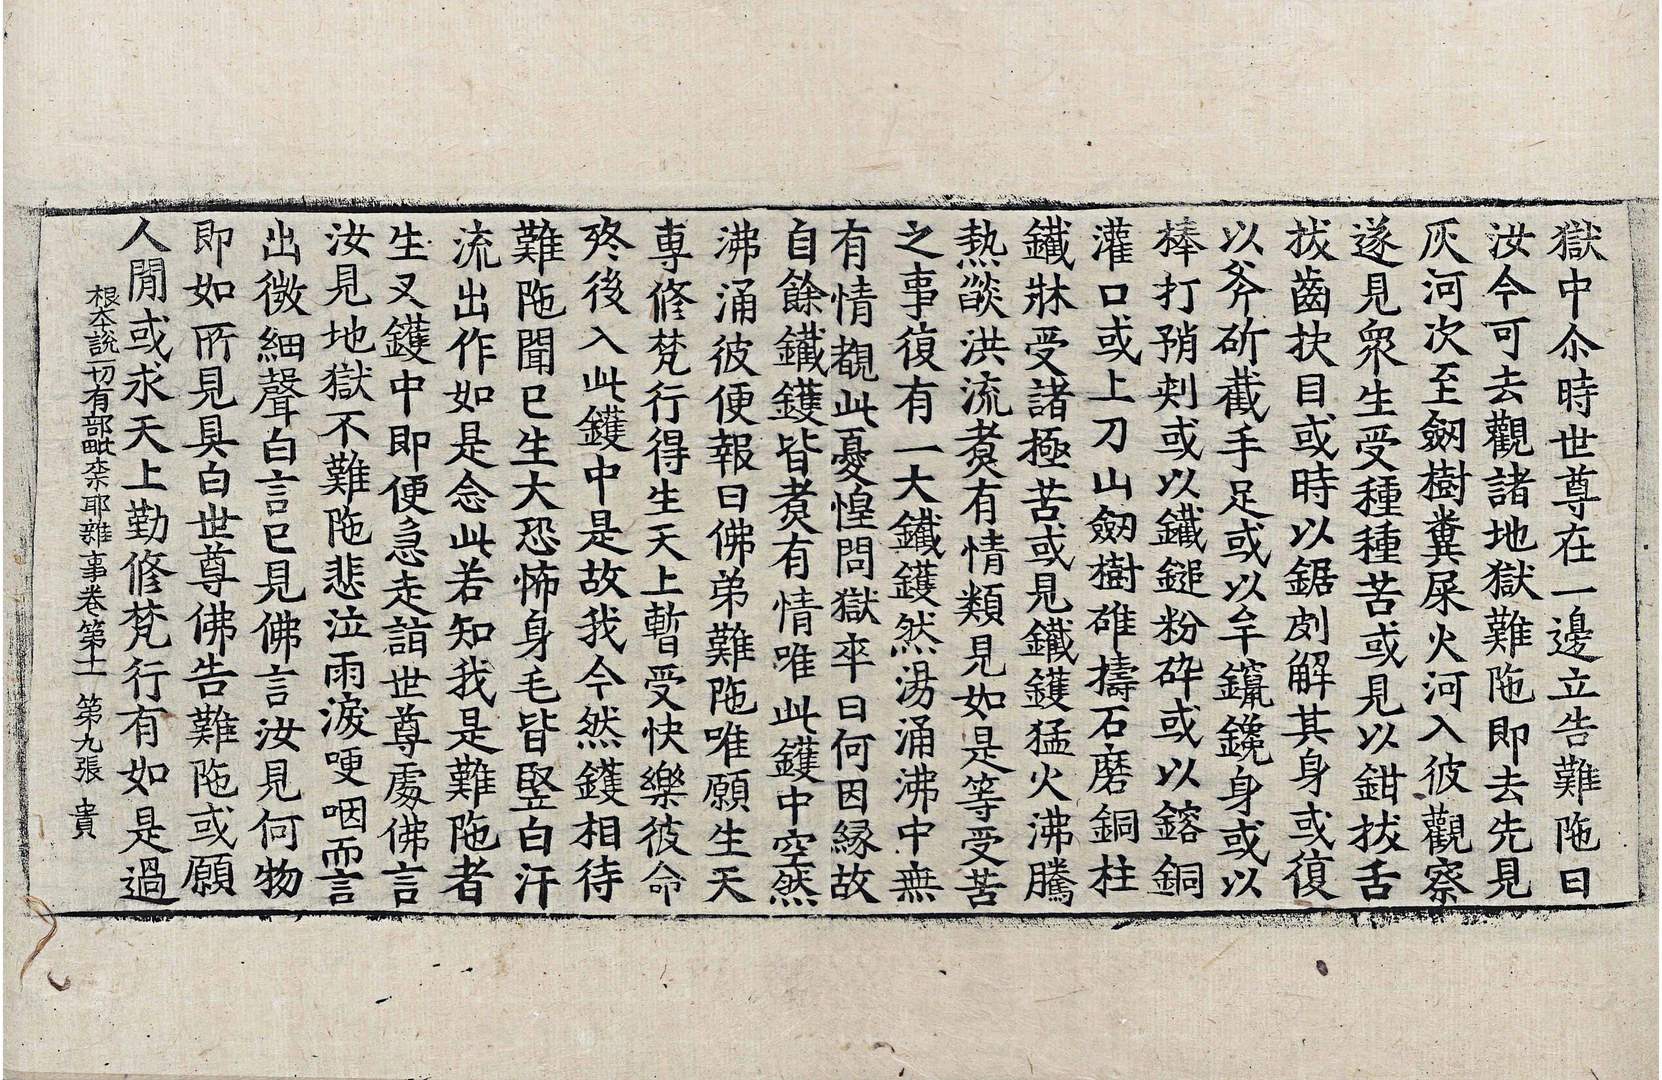 獄中尒時世尊在一邊立告難陁曰
汝今可去觀諸地獄難陁即去先見
灰河次至劒樹糞屎火河入彼觀察
遂見衆生受種種苦或見以鉗拔舌
拔齒抉目或時以鋸劇解其身或復
以斧斫截手足或以牟鑹鑱身或以
棒打矟刺或以鐵鎚粉碎或以鎔銅
灌口或上刀山劒樹碓擣石磨銅柱
鐵牀受諸極苦或見鐵鑊猛火沸騰
熱㷔洪流煑有情類見如是等受苦
之事復有一大鐵鑊然湯涌沸中無
有情覩此憂惶問獄卒曰何因縁故
自餘鐵鑊皆煑有情唯此鑊中空然
沸涌彼便報曰佛弟難陁唯願生天
專修梵行得生天上暫受快樂彼命
終後入此鑊中是故我今然鑊相待
難陁聞已生大恐怖身毛皆竪白汗
流出作如是念此若知我是難陁者
生叉鑊中即便急走詣世尊處佛言
汝見地獄不難陁悲泣雨淚哽咽而言
出微細聲白言已見佛言汝見何物
即如所見具白世尊佛告難陁或願
人閒或求天上勤修梵行有如是過
根本說一切有部毗奈耶雜事卷第十一 第九張 貴